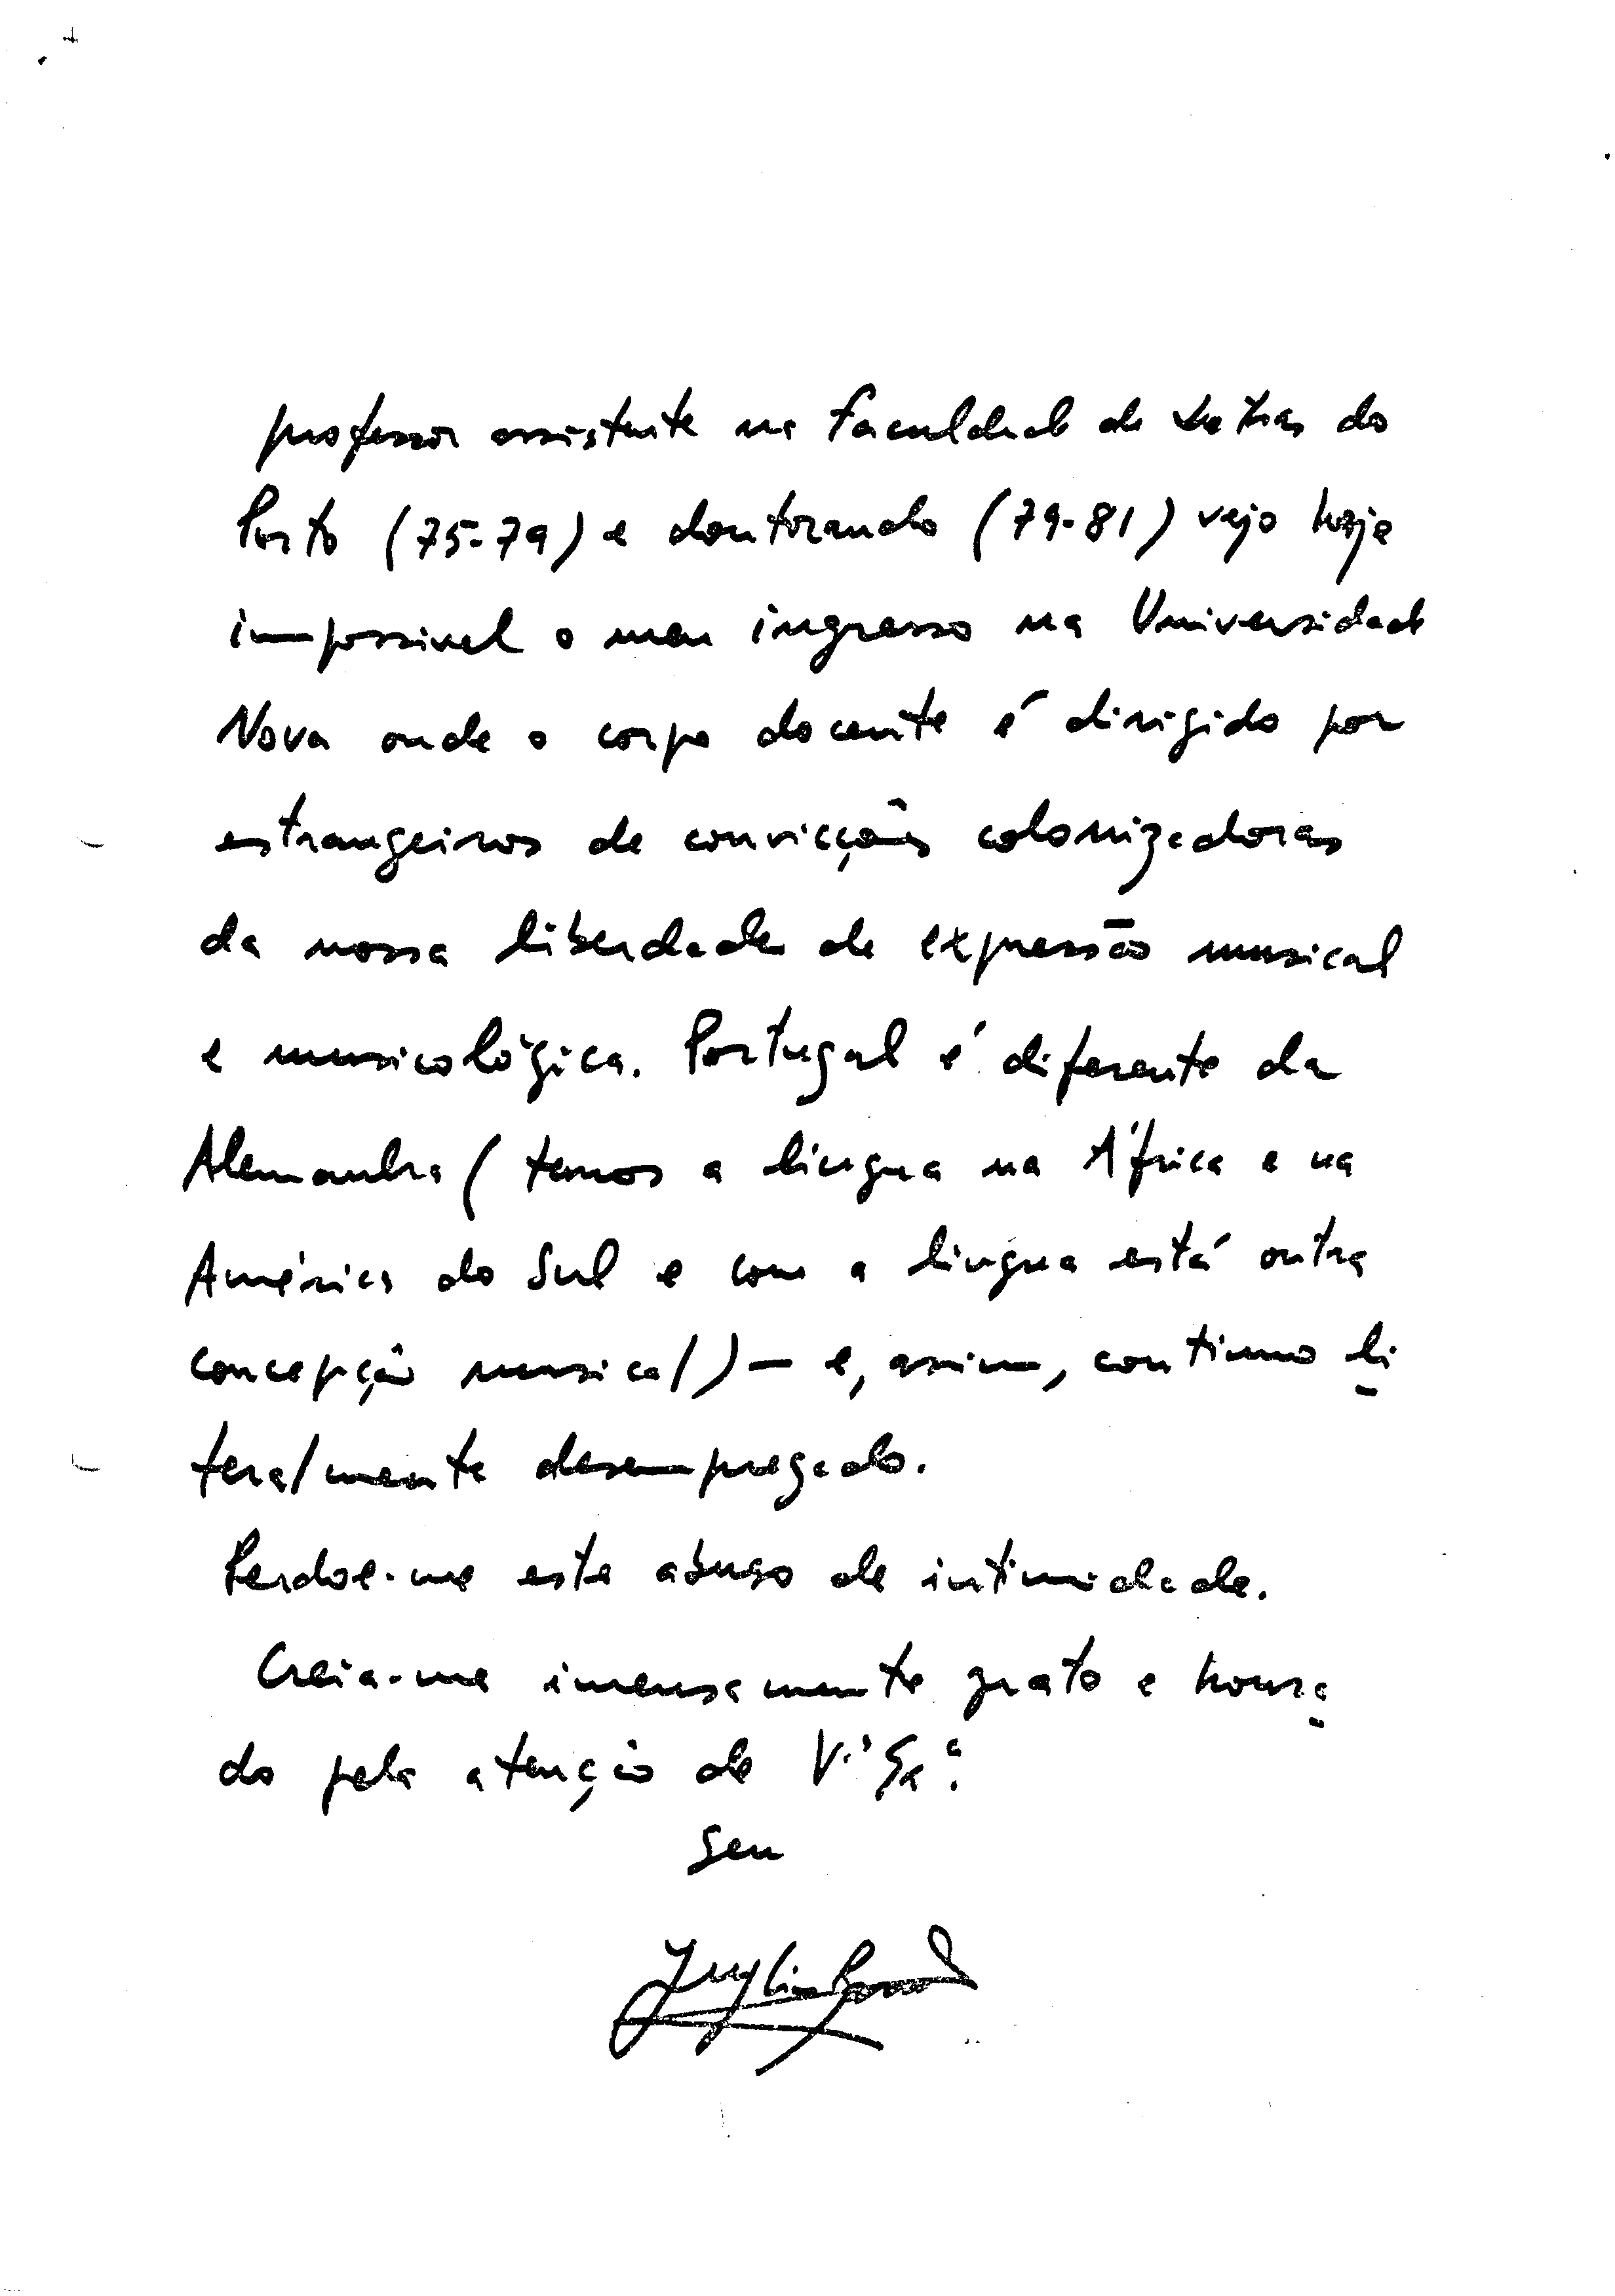 professor assistente na Faculdade de Letras do
Porto (75-79) e doutorando (79-81) vejo hoje
impossivel o meu ingresso na Universidade
Nova onde o corpo docente é dirigido por
estrangeiros de convicções colonizadoras
da nossa liberdade de expressão musical
e musicológica. Portugal é diferente da
Alemanha (temos a lingua na África e na
América do Sul e com a lingua está outra
concepção musical) — e, assim, continuo li
teralmente desempregado.
Perdoe-me este abuso de intimidade.
Creia-me imensamente grato e honra
do pela atenção de V.ª Sª.
Seu